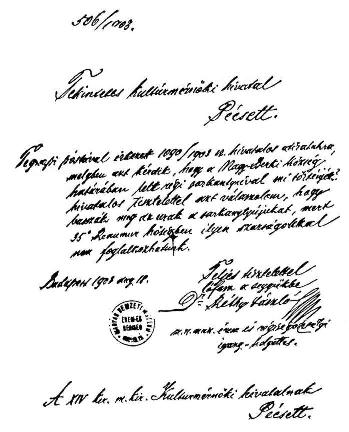 506/1908.
Tekintetes kultúrmérnöki hivatal
Pécsett.
Tegnapi postával érkezett 1090/1908 sz. hivatalos átiratukra,
melyben azt kérdik, hogy a Nagy-Berki község
határában lelt régi sarkantyúval mi történjék?
hivatalos tisztelettel azt válaszolom, hogy
basszák meg az urak a sarkantyújukat, mert
35° Reaumur hőségben ilyen szarságokkal
nem foglalkozhatunk.
Budapest 1908 aug. 18.
Teljes tisztelettel
tolom a seggükbe
Dr. Réthy László
m.n.muz. érem és régiségosztályi
igazg.-helyettes.
MAGYAR NEMZETI MÚZEUM
ÉREM ÉS
RÉGISÉG
A XIV ker. m. kir. Kultúrmérnöki hivatalnak
Pécsett.